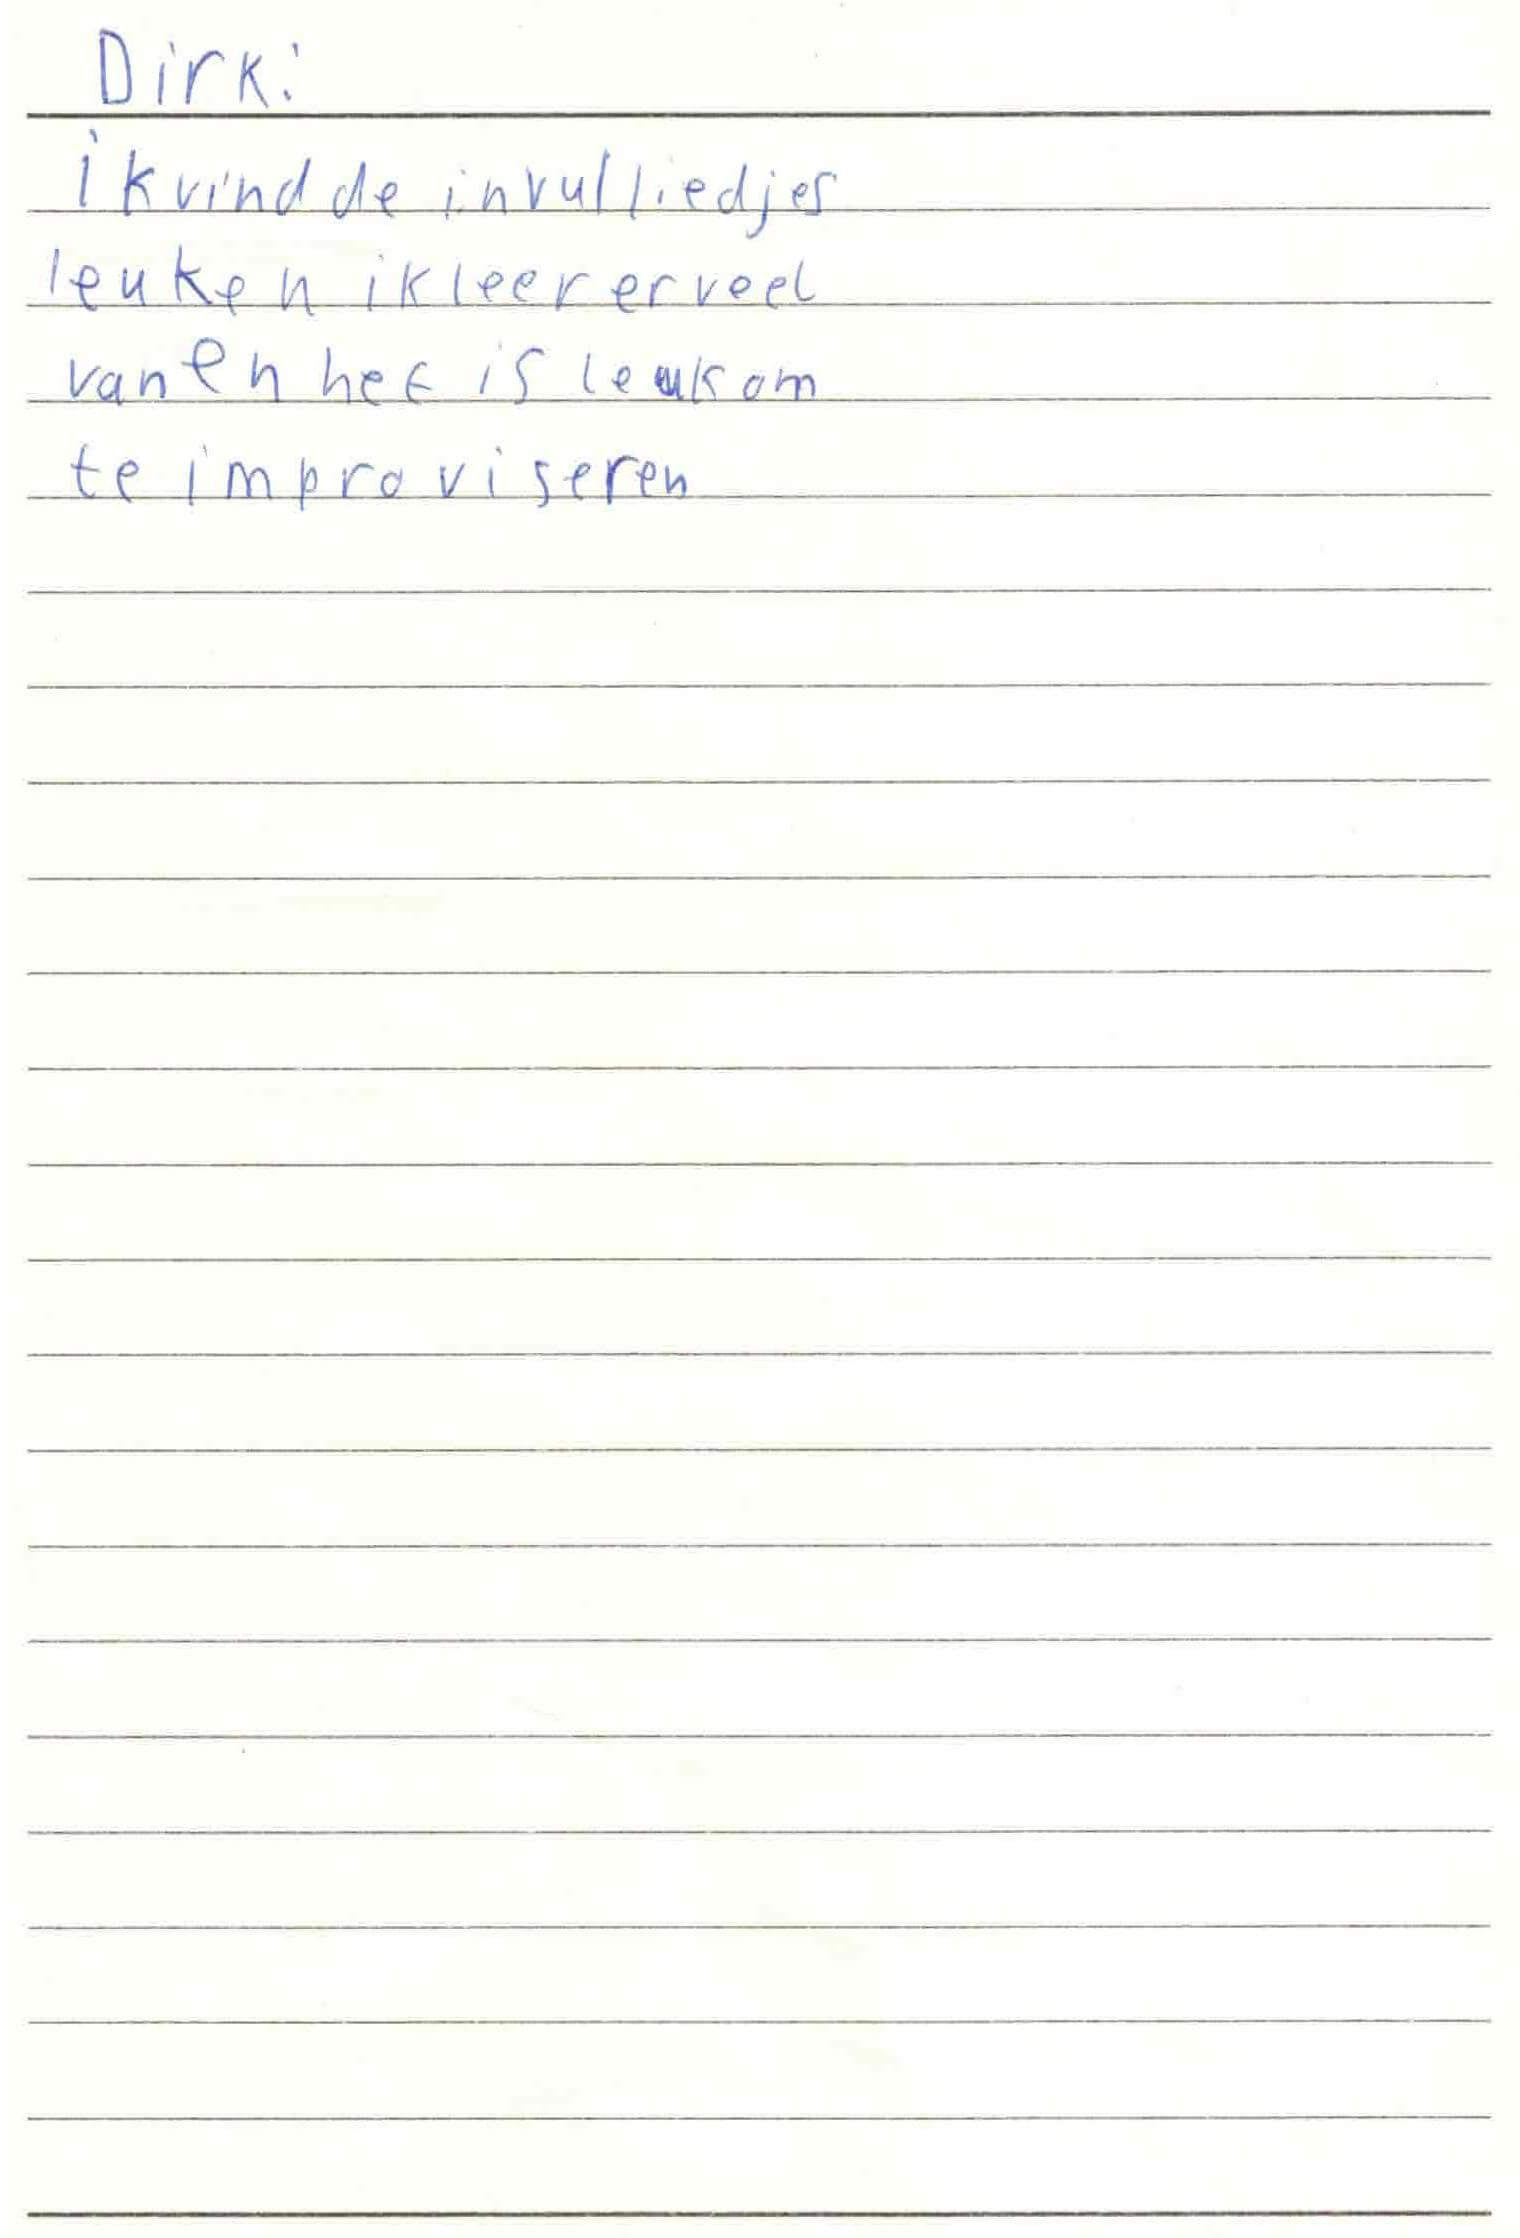 Dirk:
ik vind de invulliedjes
leuk en ik leer er veel
van en het is leuk om
te improviseren